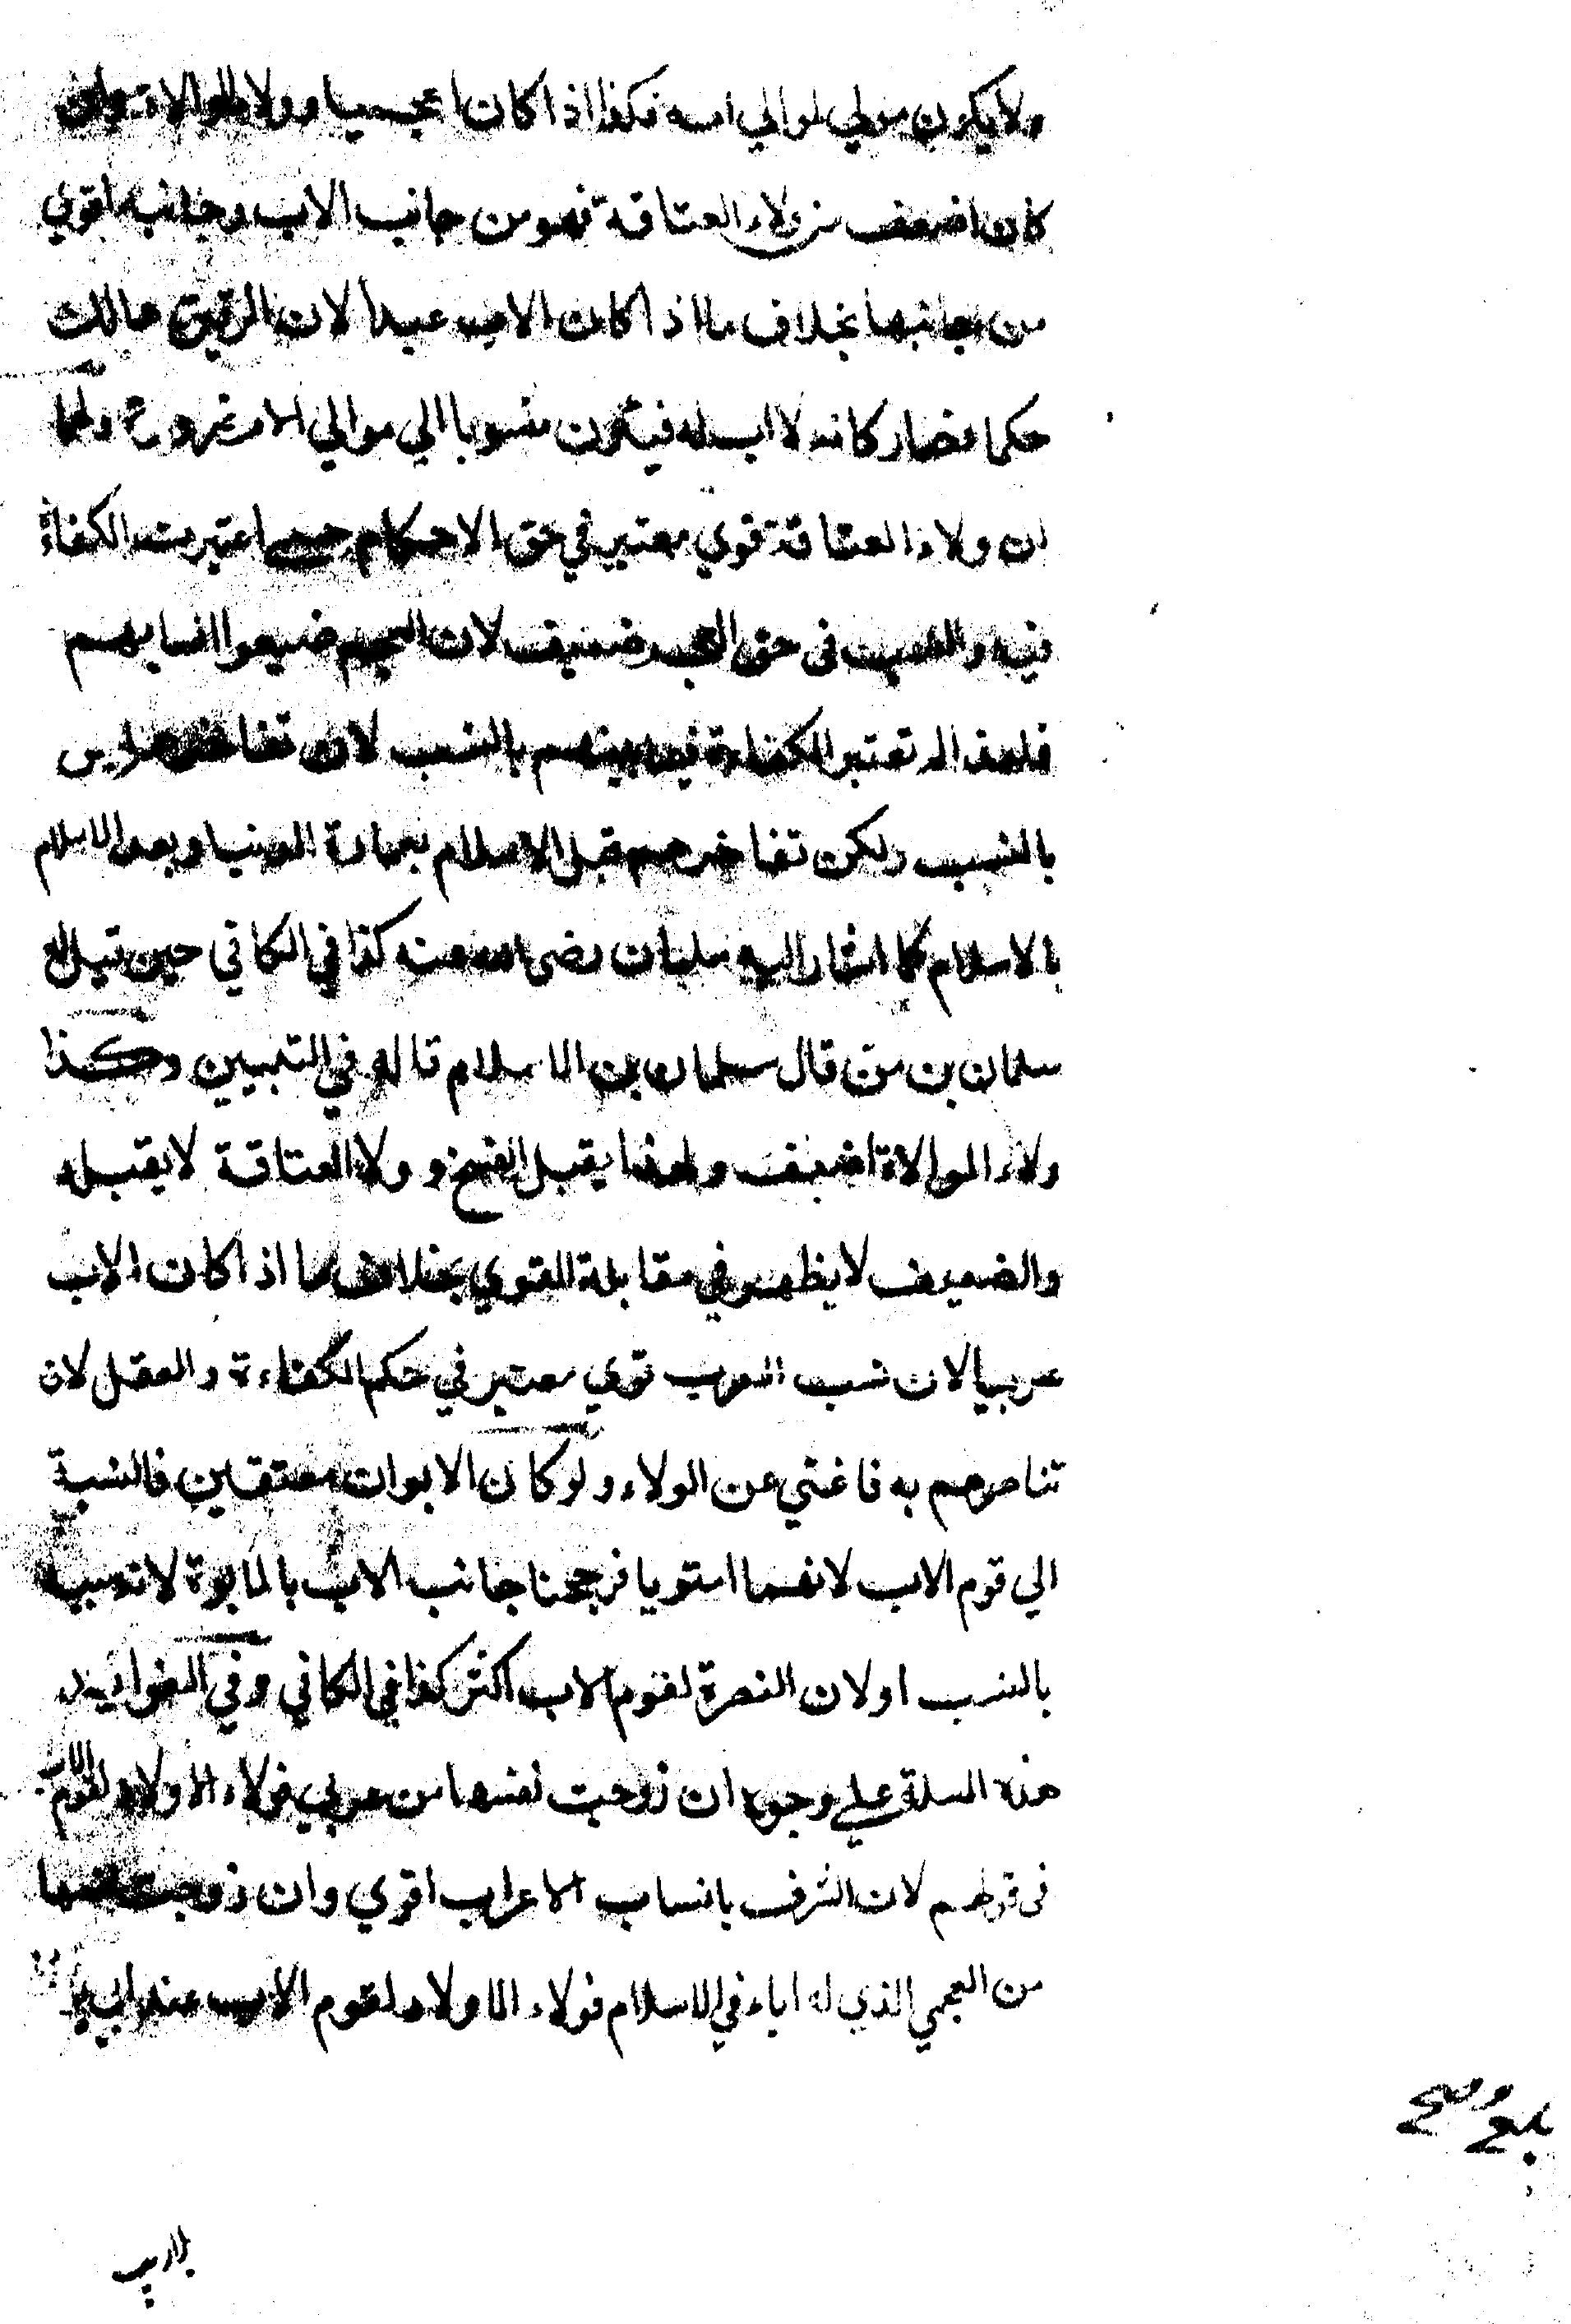 ولا يكون مولي لموالي امه فكذا اذا كان اعجميا وولاء الموالاة وان
كان اضعف من ولاء العتاقة فهو من جانب الاب وجانبه اقوي
من جانبها بخلاف ما اذا كان الاب عبدا لان الرقيق هالك
حكما فصار كانه لا اب له فيكون منسوبا الي موالي الام ضرورة ولهما
ان ولاء العتاقة قوي معتبر في حق الاحكام حتى اعتبرت الكفاءة
فيه والنسب في حق العجم ضعيف لان العجم ضيعوا انسابهم
فلهذا لم تعتبر الكفاءة فيما بينهم بالنسب لان تفاخرهم ليس
بالنسب ولكن تفاخرهم قبل الاسلام بعمارة الدنيا وبعد الاسلام
بالاسلام كما اشار اليه سلمان رضي الله عنه كذا في الكافي حين قيل له
سلمان بن من قال سلمان بن الاسلام قاله في التبيين وكذا
ولاء الموالاة اضعف ولهذا يقبل الفسخ وولاء العتاقة لا يقبله
والضعيف لا يظهر في مقابلة القوي بخلاف ما اذا كان الاب
عربيا لان نسب العرب قوي معتبر في حكم الكفاءة والعقل لان
تناصرهم به فاغني عن الولاء ولو كان الابوان معتقين فالنسبة
الي قوم الاب لانهما استويا فرجحنا جانب الاب بالابوة لانه شبيه
بالنسب او لان النصرة لقوم الاب اكثر كذا في الكافي وفي الفوايد
هذه المسلة علي وجوه ان زوجت نفسها من عربي فولاء الاولاد لقوم الاب
في قولهم لان الشرف بانساب الاعراب اقوي وان زوجت نفسها
من العجمي الذي له اباء في الاسلام فولاء الاولاد لقوم الاب عند ابي